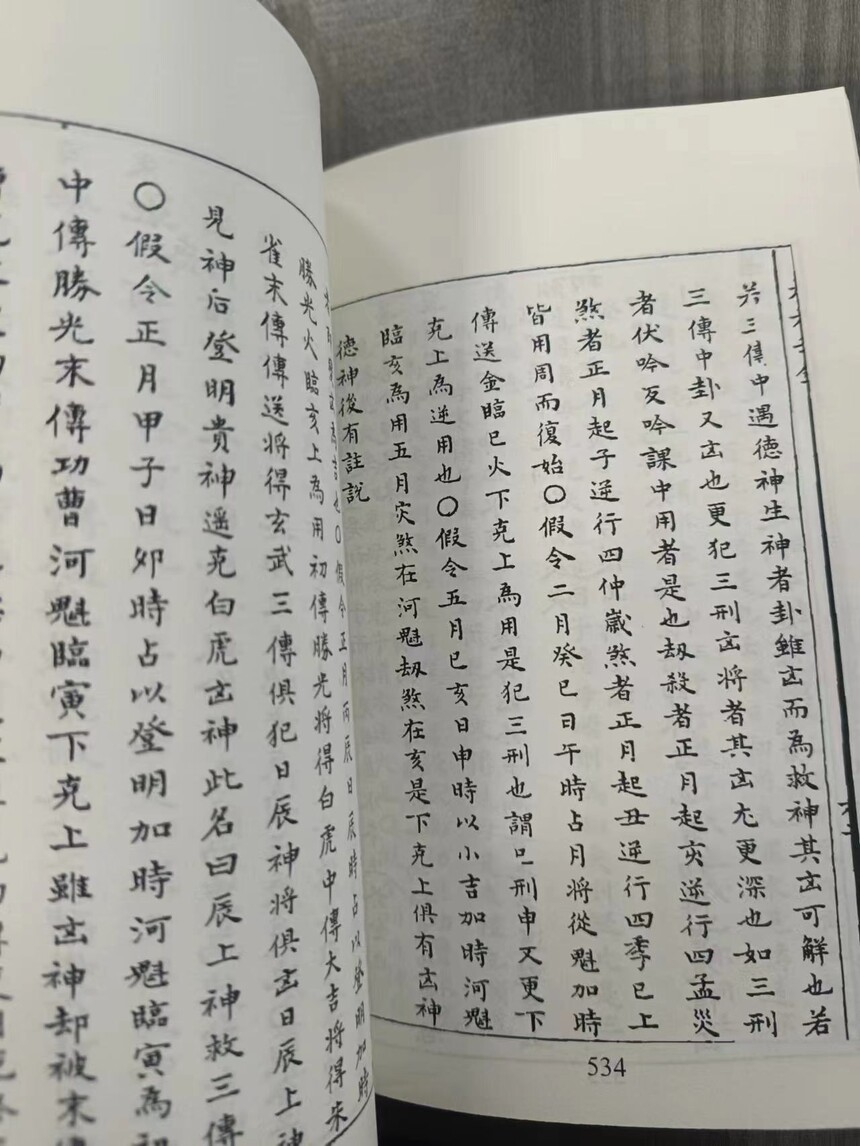 若三傳中遇德神生神者卦雖凶而為救神其凶可解也若
三傳中卦又凶也更犯三刑凶将者其凶尤更深也如三刑
者伏吟反吟課中用者是也劫殺者正月起亥逆行四孟災
煞者正月起子逆行四仲歲煞者正月起丑逆行四季已上
皆用周而復始○假令二月癸巳日午時占月將從魁加時
傳送金臨巳火下克上為用是犯三刑也謂巳刑申又更下
克上為逆用也○假令五月巳亥日申時以小吉加時河魁
臨亥為用五月災煞在河魁劫煞在亥是下克上俱有凶神
德神後有註說
534
為吉也○假令正月丙辰日辰時占以登明加時
勝光火臨亥上為用初傳勝光將得白虎中傳大吉將得朱
雀末傳傳送將得玄武三傳俱犯日辰神將俱凶日辰上神
見神后登明貴神遥克白虎凶神此名曰辰上神救三傳
○假令正月甲子日卯時占以登明加時河魁臨寅為初
中傳勝光末傳功曹河魁臨寅下克上雖凶神却被末